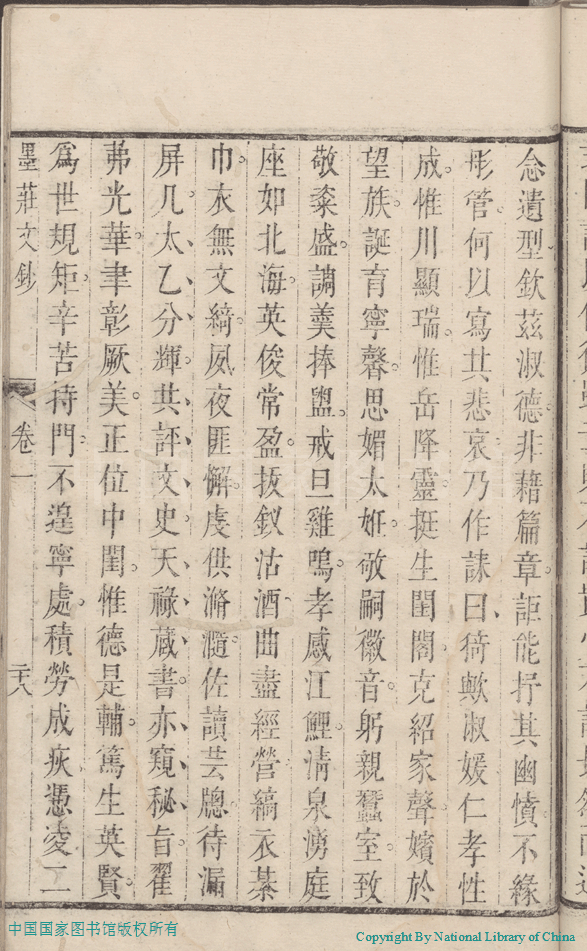 念遺型欽茲淑德。非藉篇章。詎能抒其幽憤。不緣
彤管。何以寫其悲哀。乃作誄曰、猗歟淑媛。仁孝性
成。惟川顯瑞。惟岳降靈。挺生閨閤。克紹家聲。嬪於
望族。誕育寧馨。思媚太姙。敬嗣徽音。躬親蠶室。致
敬粢盛。調羹捧盥。戒旦雞鳴。孝感江鯉。清泉湧庭
座如北海。英俊常盈。拔釵沽酒。曲盡經營。縞衣綦
巾。衣無文綺。夙夜匪懈。虔供滫瀡。佐讀芸牕。待漏
屏几。太乙分輝。共評文史。天祿藏書。亦窺秘旨。翟
茀光華。聿彰厥美。正位中閨。惟德是輔。篤生英賢。
爲世規矩。辛苦持門。不遑寧處。積勞成疾。憑凌二
墨莊文鈔 卷一 二十八
中国国家图书馆版权所有
Copyright By National Library of China